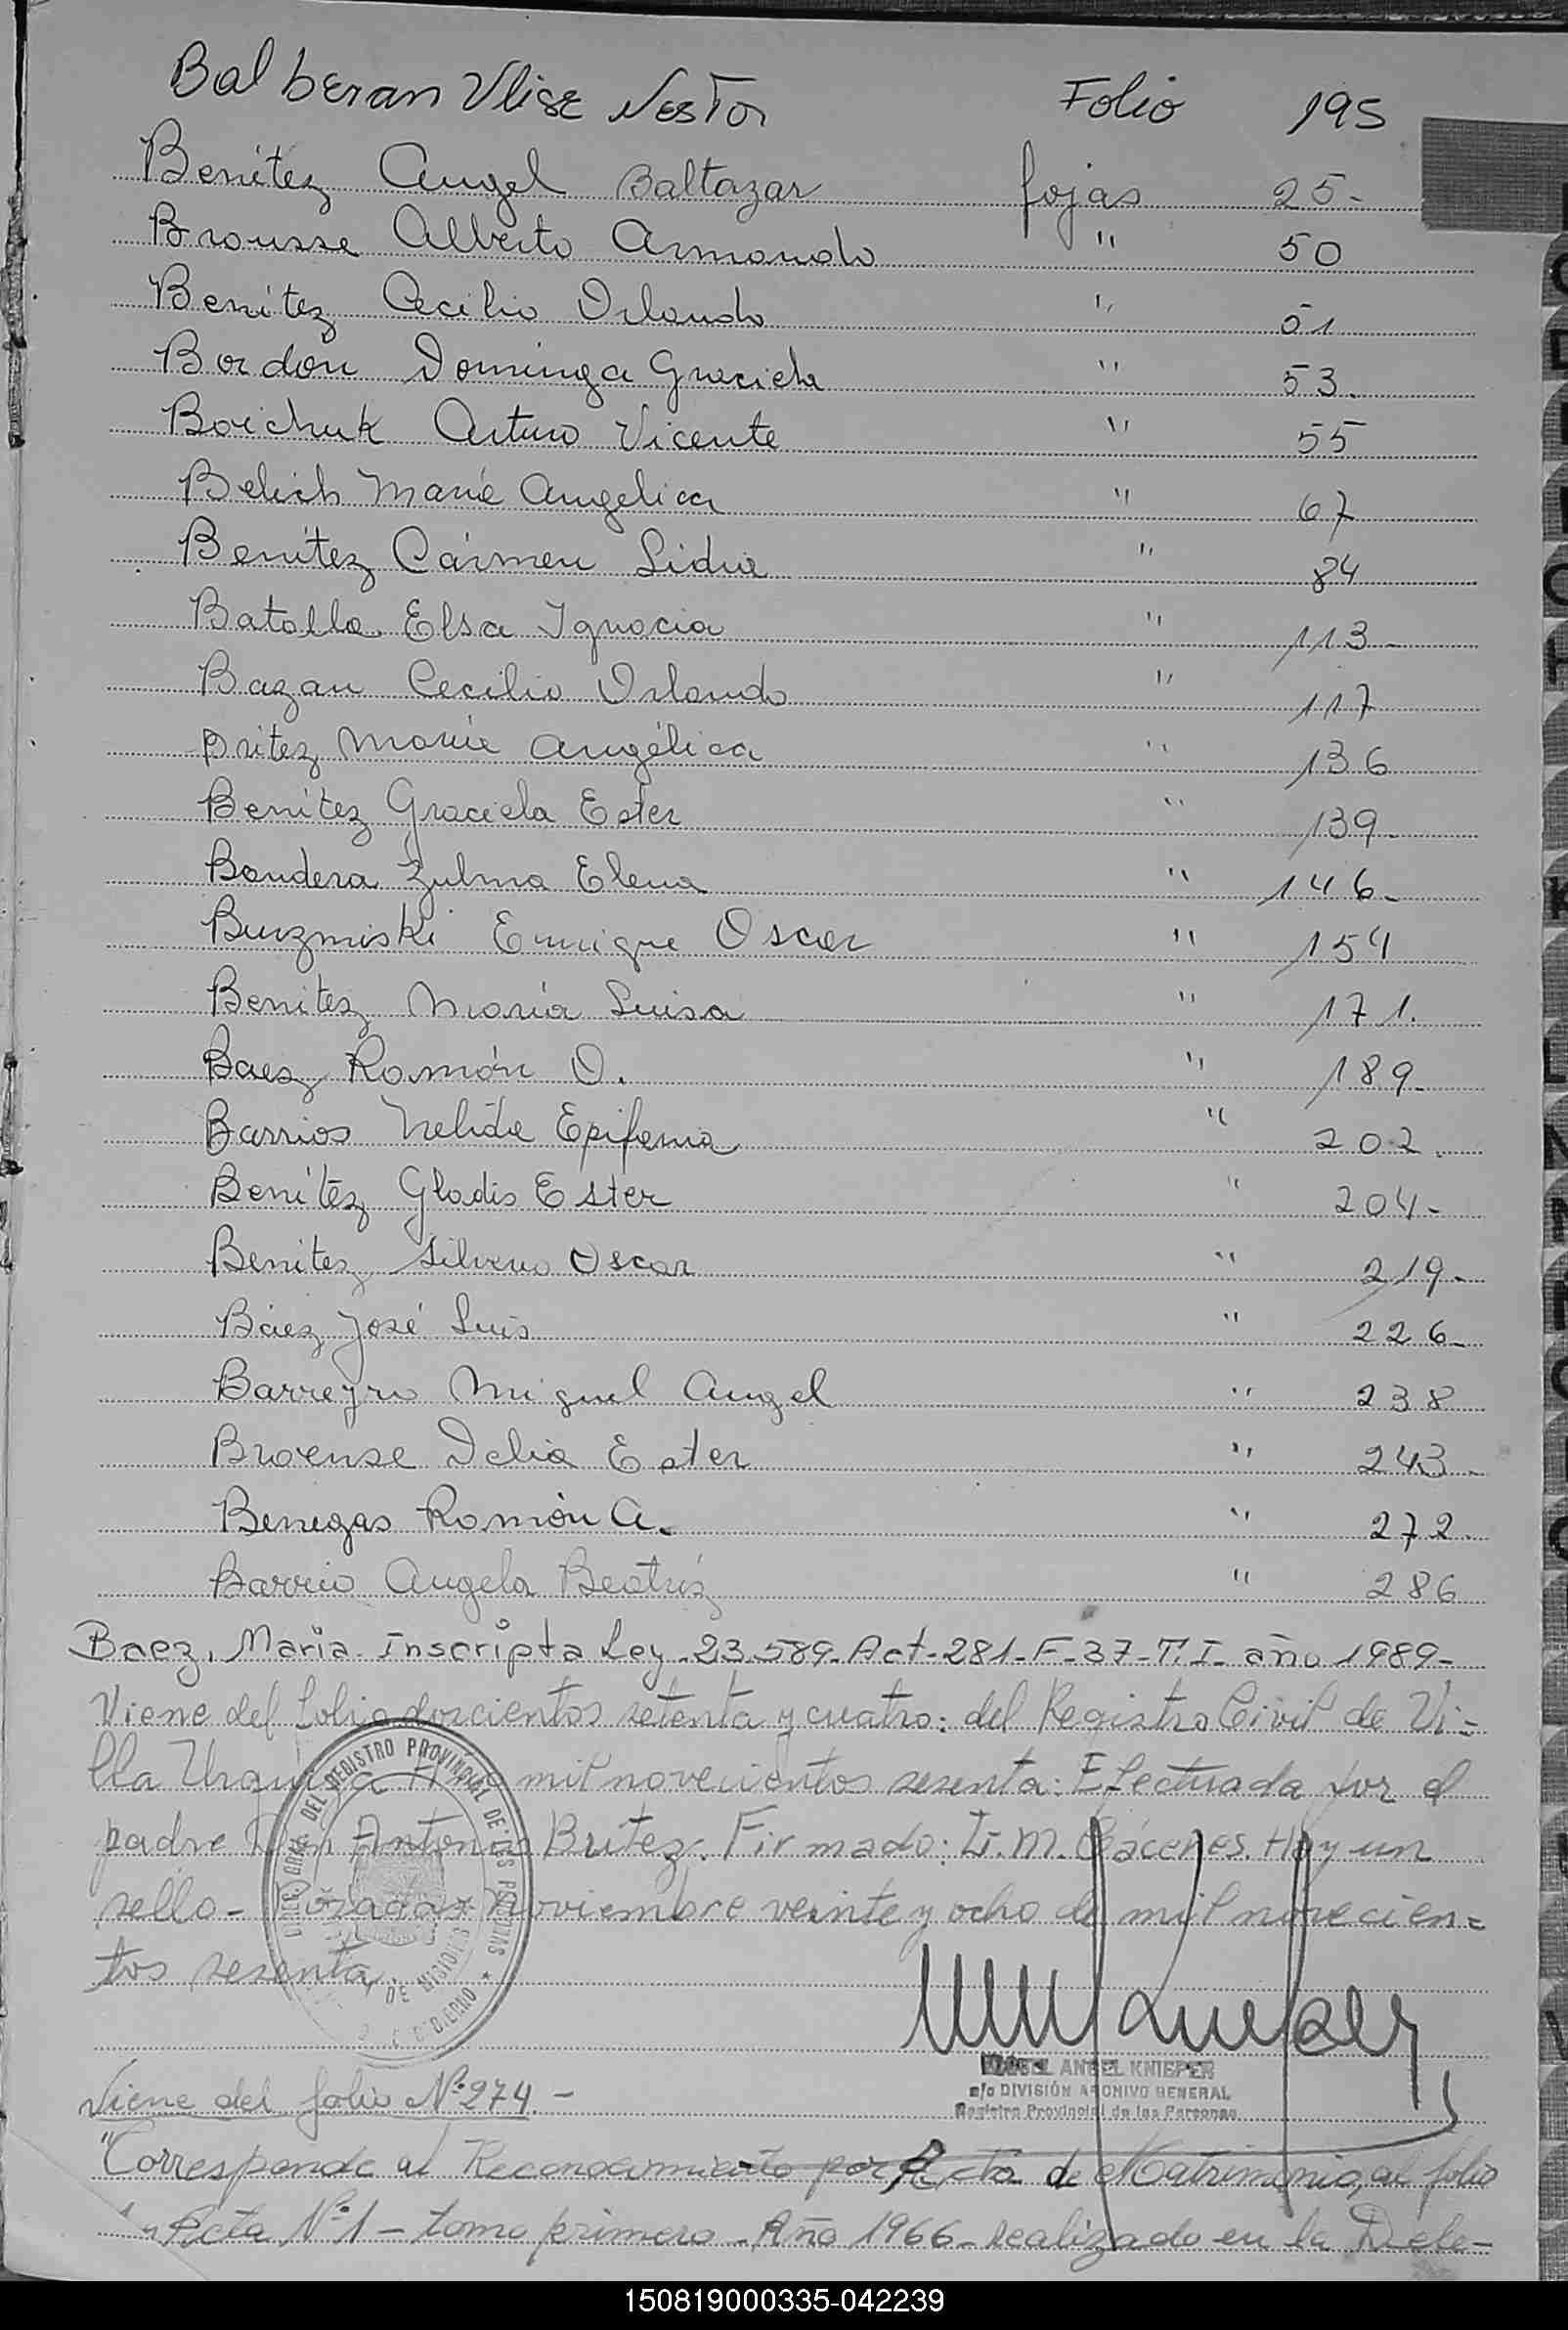 Balberan Ulise Nestor Folio 195
Benítez Angel Baltazar fojas 25-
Brousse Alberto Armando " 50
Benítez Cecilio Orlando " 51
Bordón Dominga Graciela " 53.
Boichuk Arturo Vicente " 55
Belich María Angelica " 67
Benítez Cármen Lidia " 84
Batalla Elsa Ignacia " 113-
Bazan Cecilio Orlando " 117
Britez María Angélica " 136
Benítez Graciela Ester " 139-
Bandera Zulma Elena " 146-
Buzmiski Enrique Oscar " 154
Benitez María Luisa " 171.
Baez Román O. " 189-
Barrios Nelida Epifania " 202.
Benítez Gladis Ester " 204-
Benitez Silverio Oscar " 219-
Báez José Luis " 226-
Barreyro Miguel Angel " 238
Broense Delia Ester " 243-
Benegas Ramón A. " 272.
Barrio Angela Beatríz " 286
Baez, Maria Inscripta Ley-23.589-Act-281-F-37-T.I- año 1989-
Viene del folio doscientos setenta y cuatro: del Registro Civil de Vi-
lla Urquiza Año mil novecientos sesenta: Efectuada por el
padre Don Antonio Britez. Firmado: L. M. Cáceres. Hay un
sello- Posadas Noviembre veinte y ocho de mil novecien-
tos sesenta.
DIREC. GRAL. DEL REGISTRO PROVINCIAL DE LAS PERSONAS
DE MISIONES
ANGEL KNIEPER
a/c DIVISIÓN ARCHIVO GENERAL
Registro Provincial de las Personas
Viene del folio Nº 274.-
"Corresponde al Reconocimiento por Acta de Matrimonio, al folio
1 y Acta Nº 1 - tomo primero - Año 1966 - realizado en la Dele-
150819000335-042239